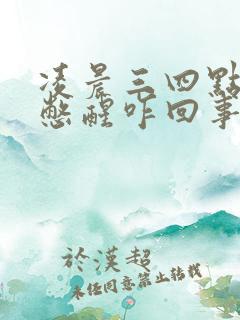 凌晨三四點
憋醒咋回事
於漢超
未经同意禁止转载